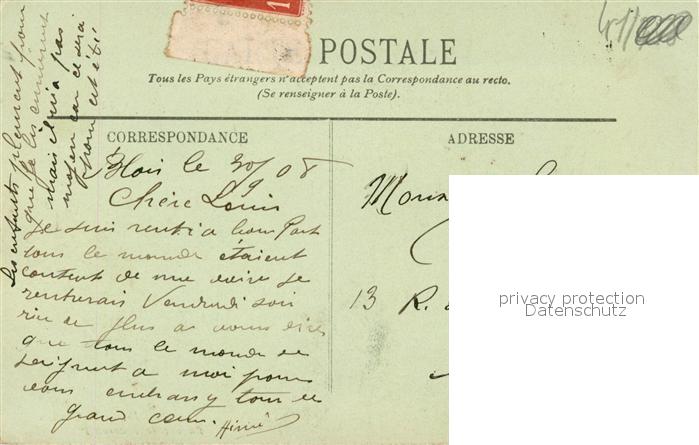 POSTALE
Tous les Pays étrangers n'acceptent pas la Correspondance au recto.
(Se renseigner à la Poste).
CORRESPONDANCE
ADRESSE
Blois le 30/9 08
Chère Louis
Je suis rentré a bon Port
tous le monde étaient
content de me voire je
rentrerais Vendredi soir
rien de plus a vous dire
que tous le monde se
joignent a moi pour
vous embrassy tous de
grand cœur.
les enfants pleurent pour
que je les emmerent
mais il ni a pas
moyen car ce serai
pour cet été
13 R.
privacy protection
Datenschutz